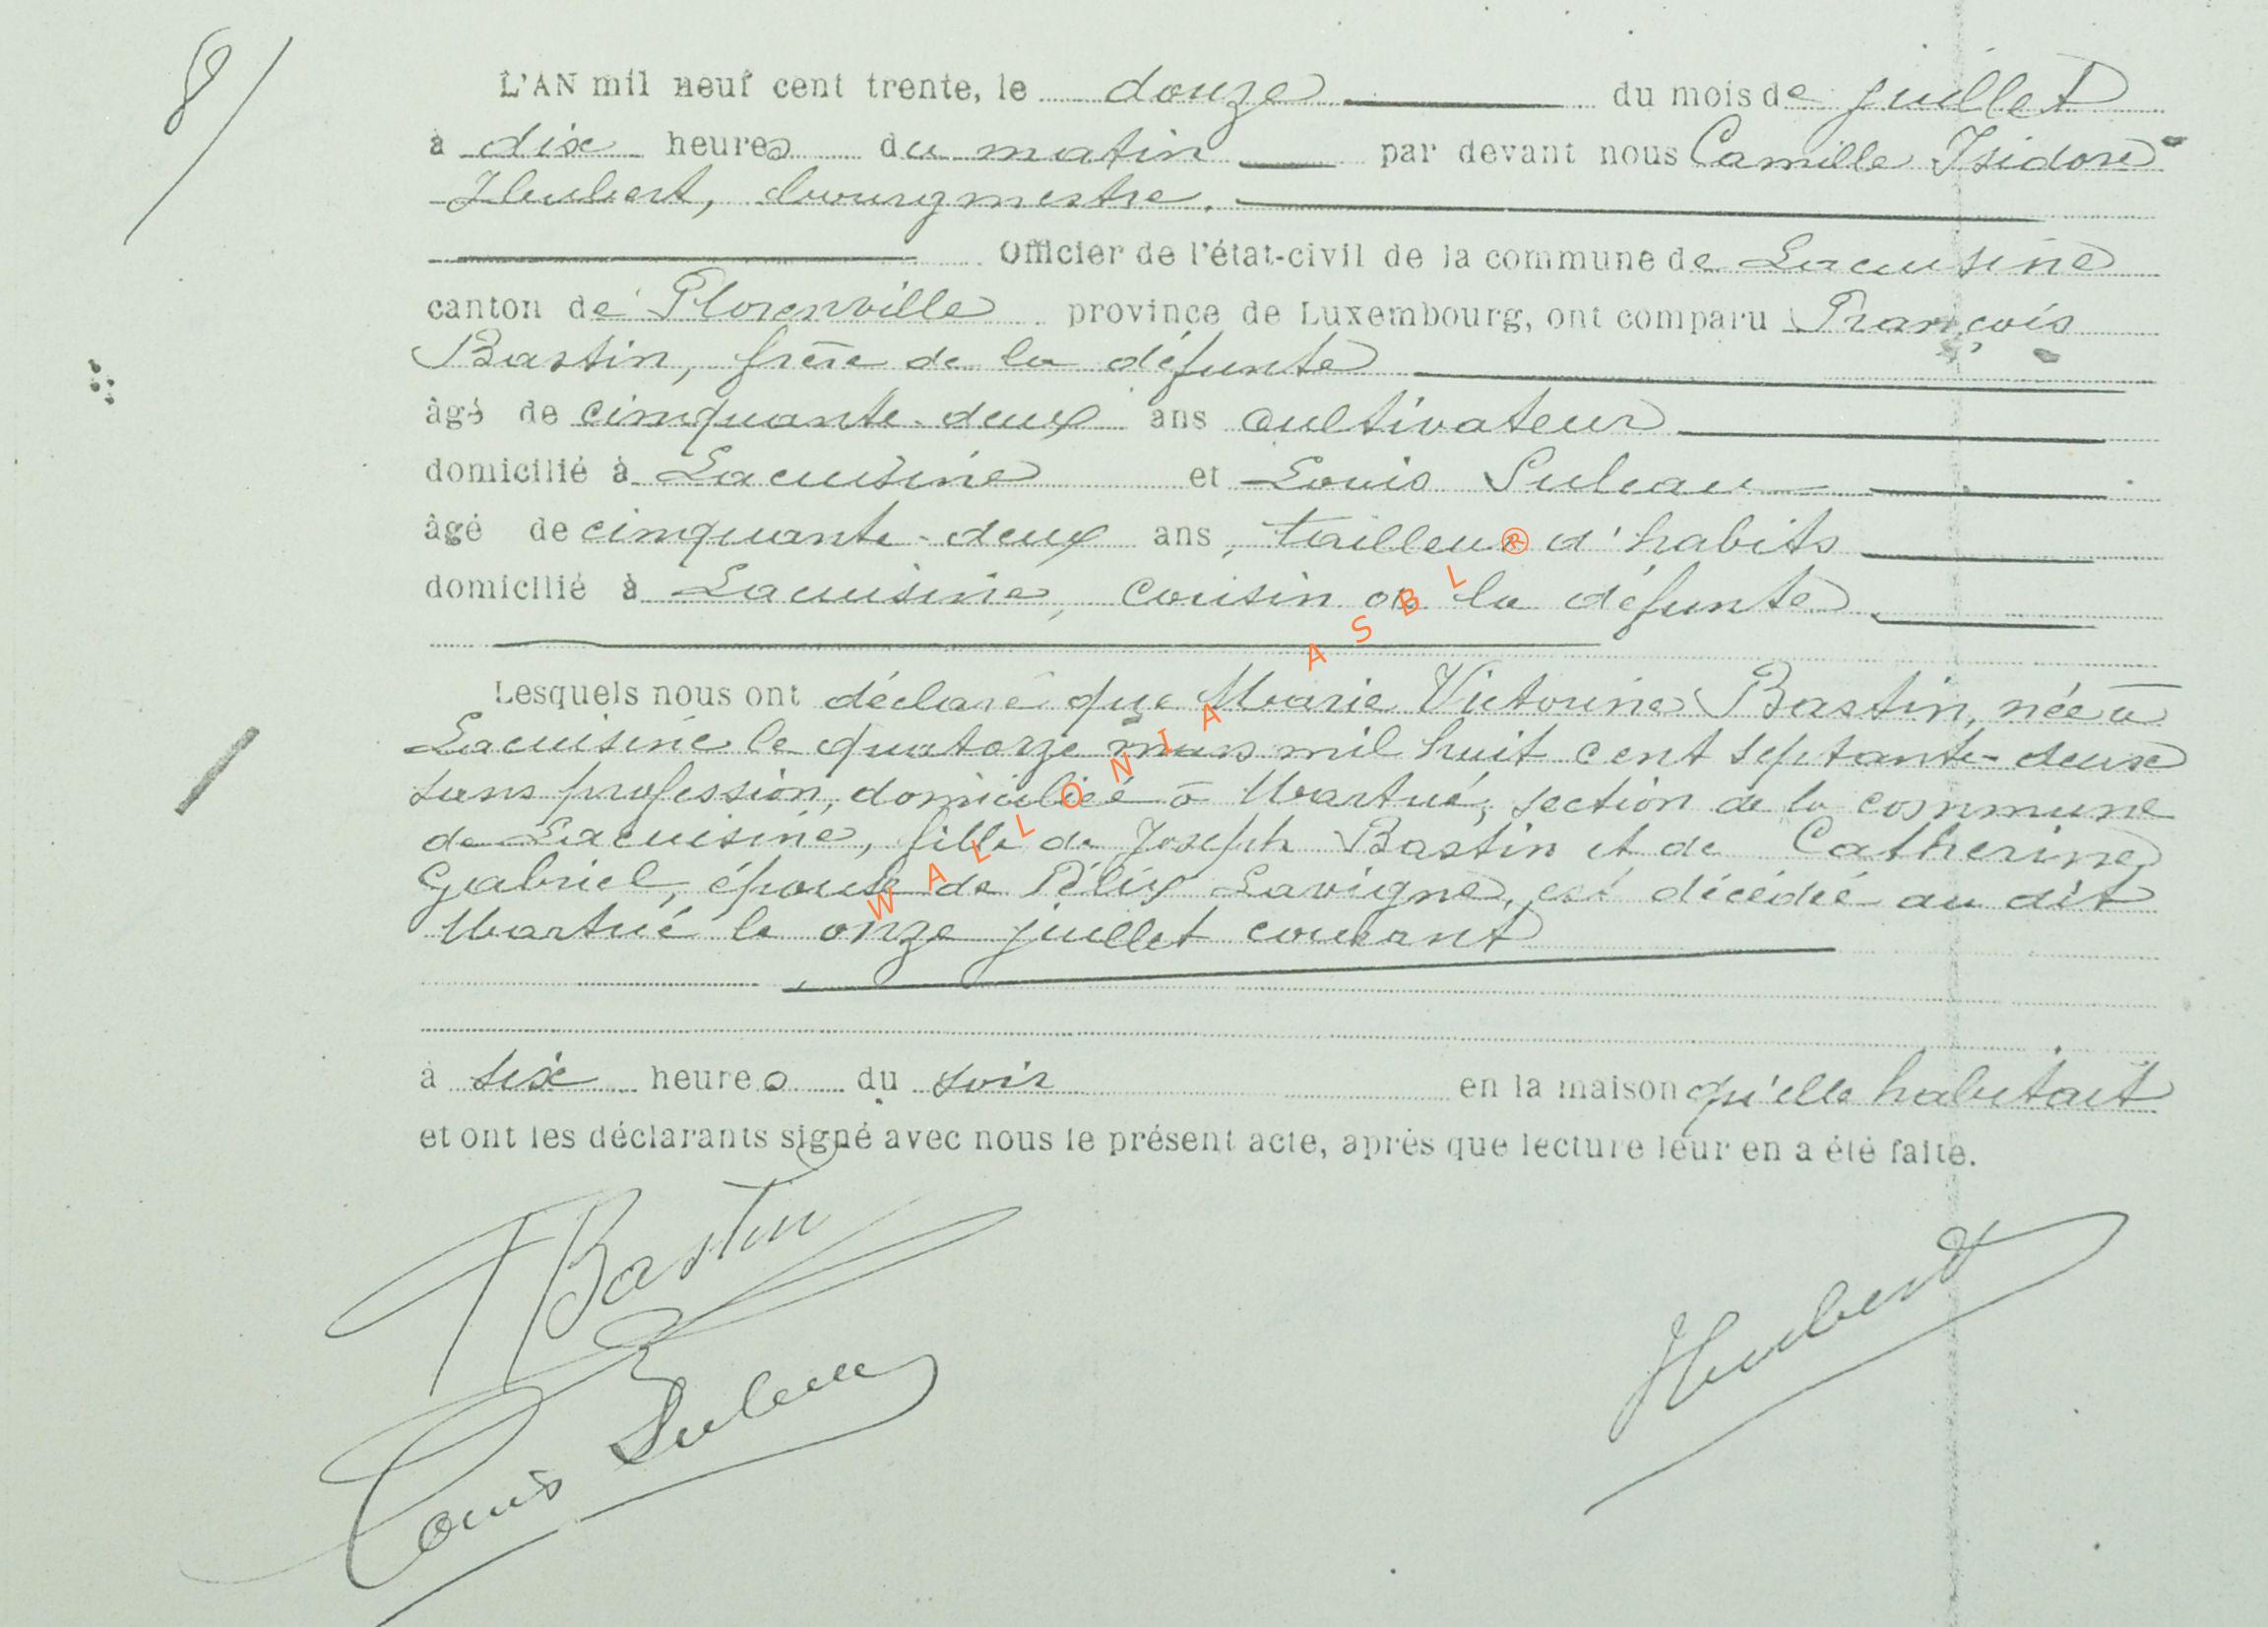 8/
L'AN mil neuf cent trente, le douze du mois de juillet
à dix heures du matin par devant nous Camille Isidore
Hubert, bourgmestre.
Officier de l'état-civil de la commune de Lacuisine
canton de Florenville province de Luxembourg, ont comparu François
Bastin, frère de la défunte
âgé de cinquante-deux ans cultivateur
domicilié à Lacuisine et Louis Suleau
âgé de cinquante-deux ans, tailleur d'habits
domicilié à Lacuisine, cousin de la défunte
Lesquels nous ont déclaré que Marie Victorine Bastin, née à
Lacuisine le quatorze mars mil huit cent septante-deux
sans profession, domiciliée à Martué, section de la commune
de Lacuisine, fille de Joseph Bastin et de Catherine
Gabriel, épouse de Félix Lavigne, est décédée au dit
Martué le onze juillet courant
à six heures du soir en la maison qu'elle habitait
et ont les déclarants signé avec nous le présent acte, après que lecture leur en a été faite.
F Bastin
Hubert
Louis Suleau
WALLONIA ASBL ®